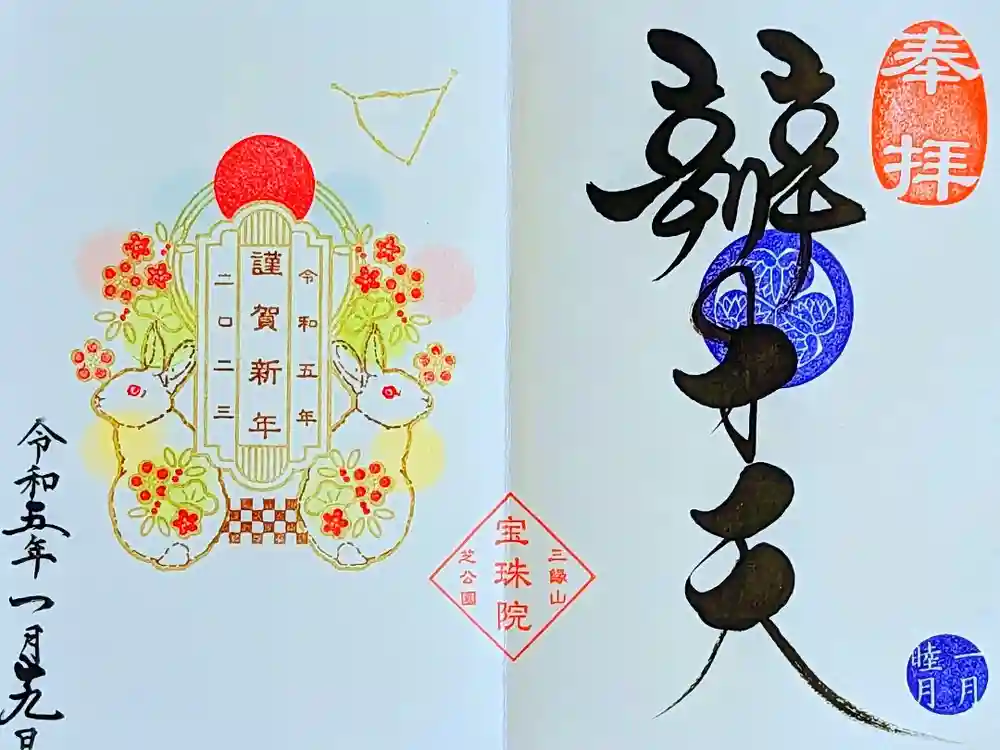 奉拝
辨才天
一月
睦月
三縁山
宝珠院
芝公園
令和五年
謹賀新年
二〇二三
令和五年一月十九日